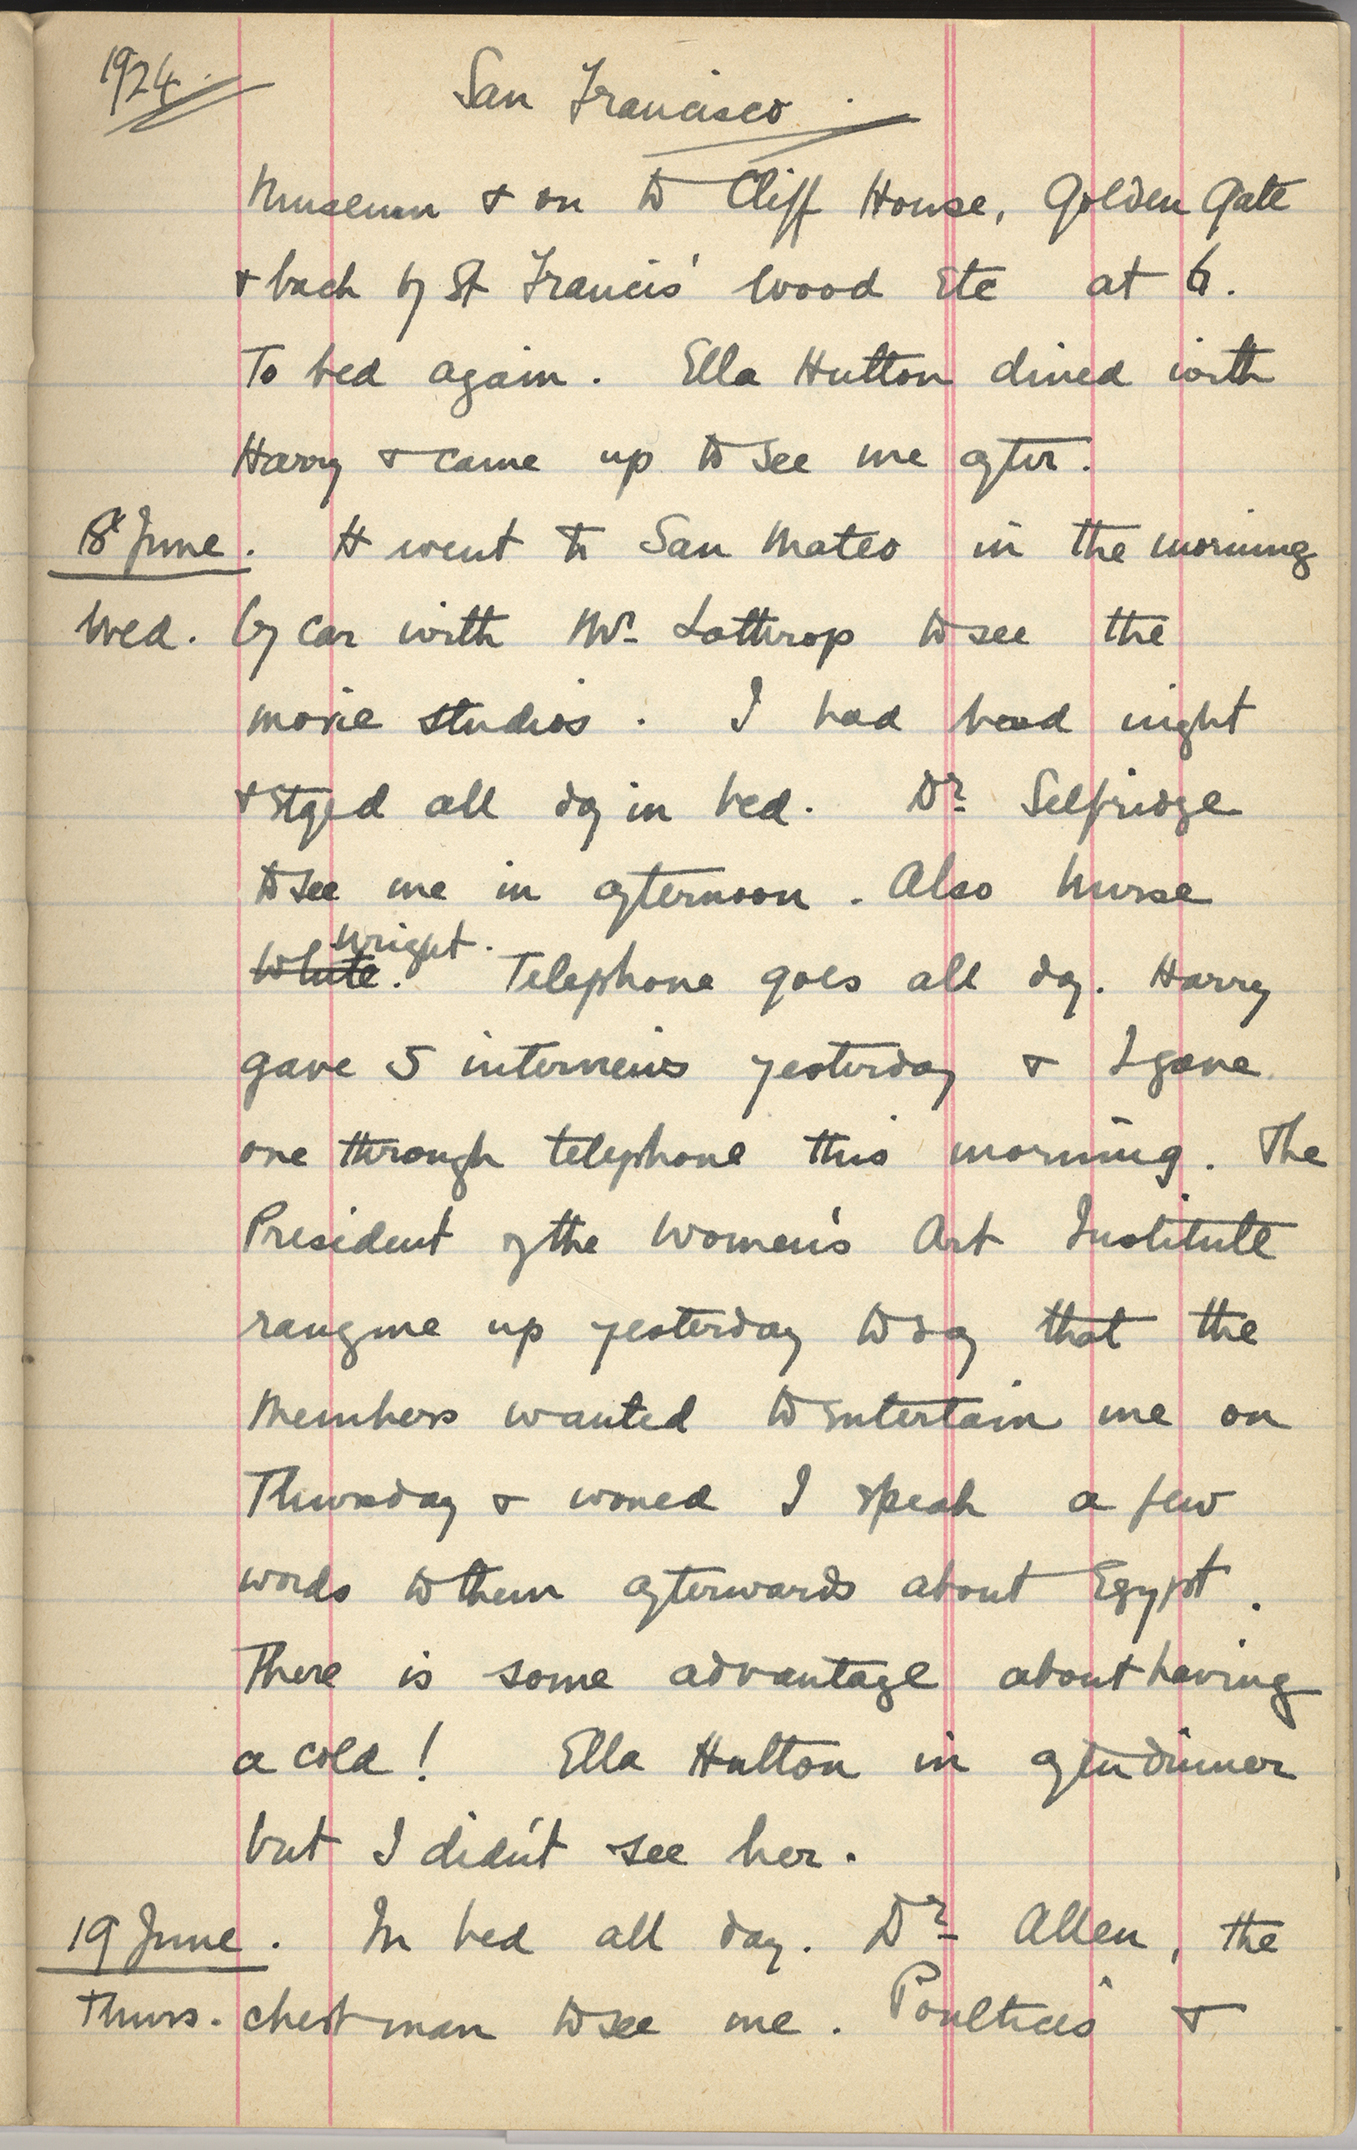 1924.
San Francisco.
Museum & on to Cliff House, Golden Gate
& back by St Francis' Wood etc at 6.
To bed again. Ella Hutton dined with
Harry & came up to see me after.
18 June. H went to San Mateo in the morning
Wed. by car with Mr Lothrop to see the
movie studios. I had bad night
& stayed all day in bed. Dr Selfridge
to see me in afternoon. Also Nurse
White. Wright. Telephone goes all day. Harry
gave 5 interviews yesterday & I gave
one through telephone this morning. The
President of the Women's Art Institute
rang me up yesterday to say that the
Members wanted to entertain me on
Thursday & would I speak a few
words to them afterwards about Egypt.
There is some advantage about having
a cold! Ella Hutton in after dinner
but I didn't see her.
19 June. In bed all day. Dr Allen, the
Thurs. chest man to see me. Poultices &